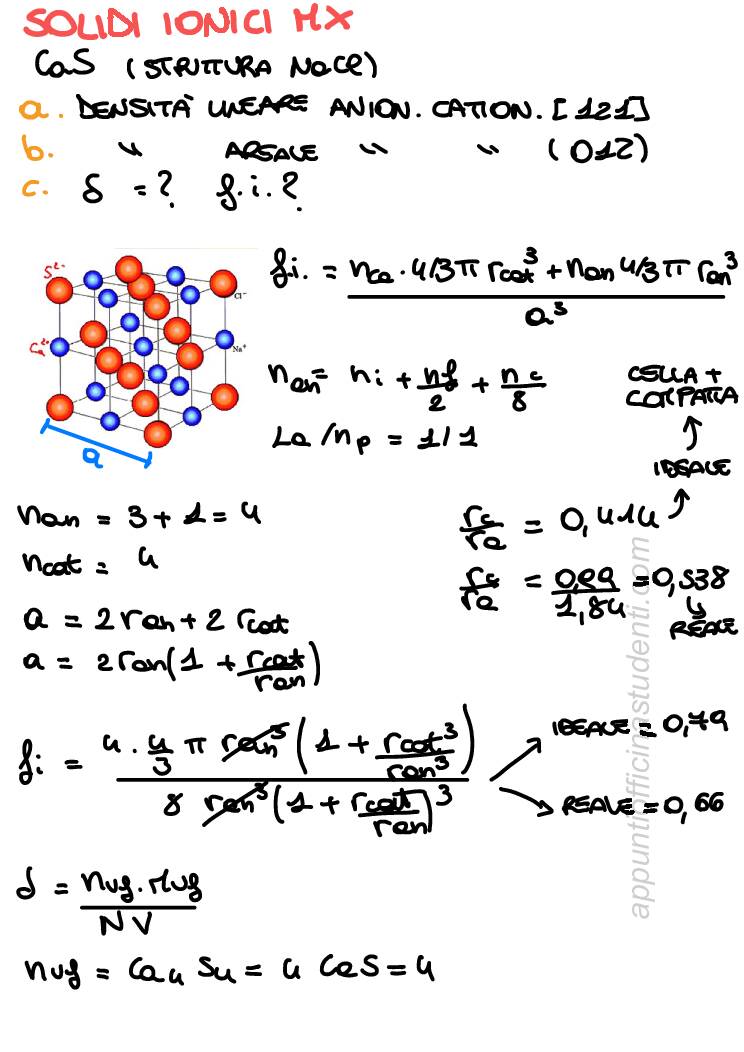 SOLIDI IONICI MX
CaS (STRUTTURA NaCl)
a. DENSITÀ LINEARE ANION. CATION. [121]
b. " AREALE " " (012)
c. δ = ? f.i. ?
S²⁻
Cl⁻
Ca²⁺
Na⁺
a
f.i. = nca · 4/3 π rcat³ + nan 4/3 π ran³ / a³
nan = ni + nf/2 + nc/8
La/np = 1/1
CELLA + COMPATTA
↑
IDEALE
nan = 3 + 1 = 4
ncat = 4
rc/ra = 0,414
rc/ra = 0,99/1,84 = 0,538
REALE
a = 2ran + 2rcat
a = 2ran (1 + rcat/ran)
fi = 4 · 4/3 π ran³ (1 + rcat³/ran³) / 8 ran³ (1 + rcat/ran)³
IDEALE = 0,79
REALE = 0,66
d = nuf · Muf / NV
nuf = Ca4 S4 = 4 CaS = 4
appuntiofficinastudenti.com